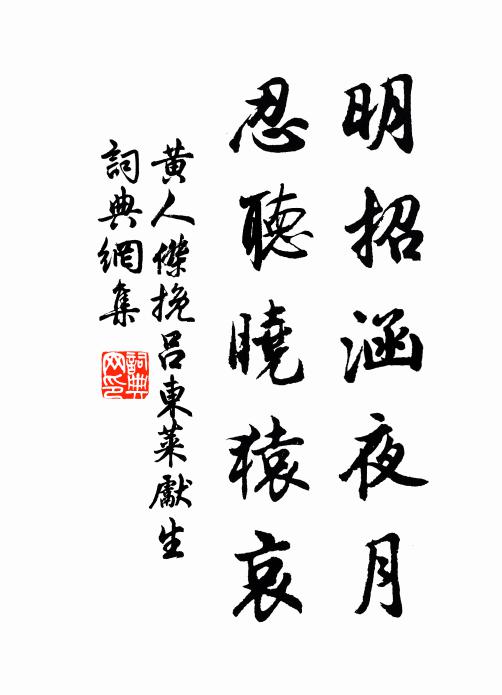 明招涵夜月
忍聽曉猿哀
黃人傑挽呂東萊獻生
詞典網集
詞典網印